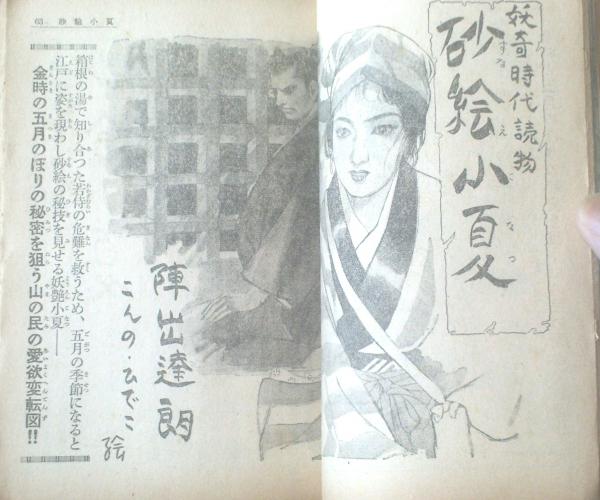 妖奇時代読物
砂絵小夏
すなえこなつ
陣出達朗
こんの・ひでこ
絵
箱根の湯で知り合つた若侍の危難を救うため、五月の季節になると
江戸に姿を現わし砂絵の秘技を見せる妖艶小夏――
金時の五月のぼりの秘密を狙う山の民の愛欲変転図!!
砂絵小夏